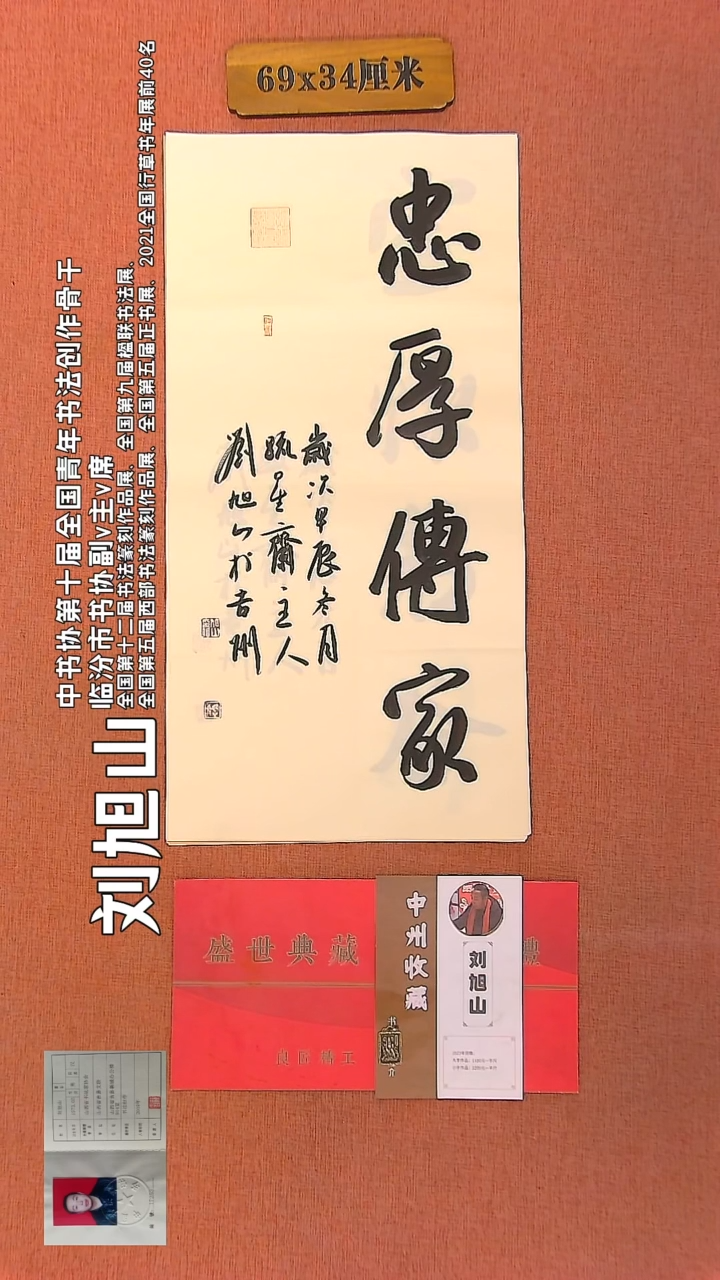 69x34厘米
忠厚傳家
歲次甲辰冬月
疏星齋主人
劉旭山於吉州
中书协第十届全国青年书法创作骨干
临汾市书协副v主v席
全国第十二届书法篆刻作品展、全国第九届楹联书法展、
全国第五届西部书法篆刻作品展、全国第五届正书展、2021全国行草书年展前40名
刘旭山
盛世典藏
良匠精工
禮
中州收藏
书
简介
刘旭山